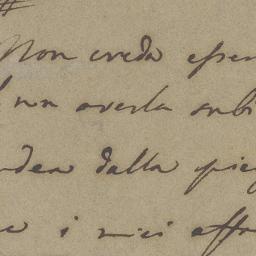 Non creda essen
un averla subi
dea dalla pie
e i miei affa